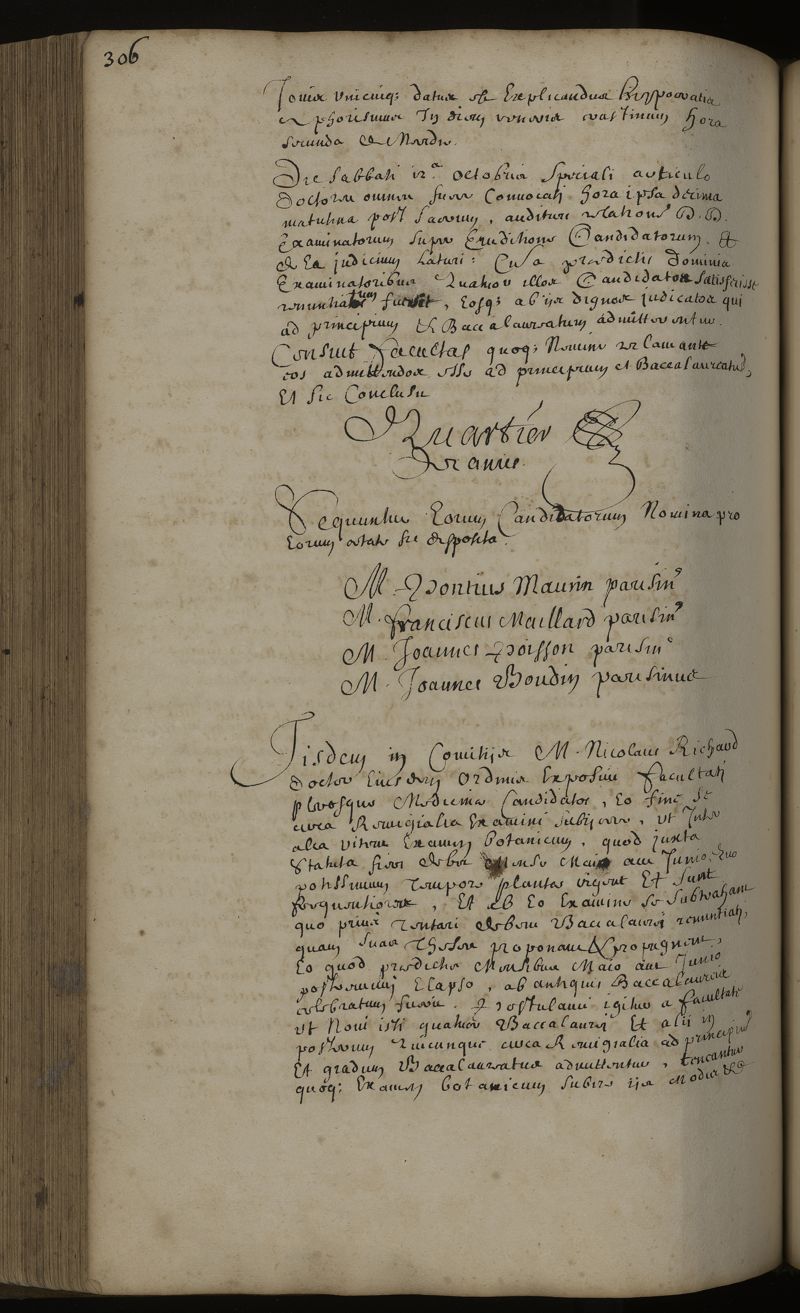 306
Jovis unicuiq; datus est Explicandus Hyppocratis
aphorismus In diem veneris crastinum hora
secunda a Meridie.
Die Sabbati 12.a octobris Speciali articulo
Doctores omnes fuere Convocati hora ipsa decima
matutina post sacrum, audituri relationes D.D.
Examinatorum super Eruditione Candidatorum. Et
de Ea judicium Laturi: Cum a praedictis Dominis
Examinatoribus Quatuor illos Candidatos satisfecisse
renuntiatum fuisset, Eosq; ab ijs dignos judicatos qui
ad principium et Baccalaureatum admitterentur.
Censuit facultas quoq; Nemine reclamante
eos admittendos esse ad principium et Baccalaureatus,
Et sic Conclusi
Quartier
Decanus.
Sequuntur Eorum Candidatorum Nomina pro
Eorum aetate sic disposita.
M. Pontius Maurin parisin9
M. franciscus Maillard parisin9
M. Joannes Poisson parisin9
M. Joannes Boudin parisinus
Iisdem in Comitijs M. Nicolaus Richard
Doctor Eiusdem Ordinis Exposuit facultati
plerosque Medicinae Candidatos, Eo fine se
circa Remigialia Examini subijcere, ut Inter
alia vitent Examen botanicum, quod juxta
Statuta fieri debet Mense Maio aut Junio, quo
potissimum tempore plantae vigent Et sunt
frequentiores, Et ab Eo Examine se subtrahant
quo prius tentari debent Baccalaurei renuntiati,
quam suas Theses proponant & propugnent,
Eo quod praedictis Mensibus Maio aut Junio
postremum Elapso, ab antiquis Baccalaureis
celebratum fuerit. Postulavit igitur a facultate
ut Novi isti quatuor Baccalaurei Et alii in
posterum quicunque circa Remigialia ad principium
Et gradum Baccalaureatus admittentur, teneantur
quoq; Examen botanicum subire ijs Modis &c